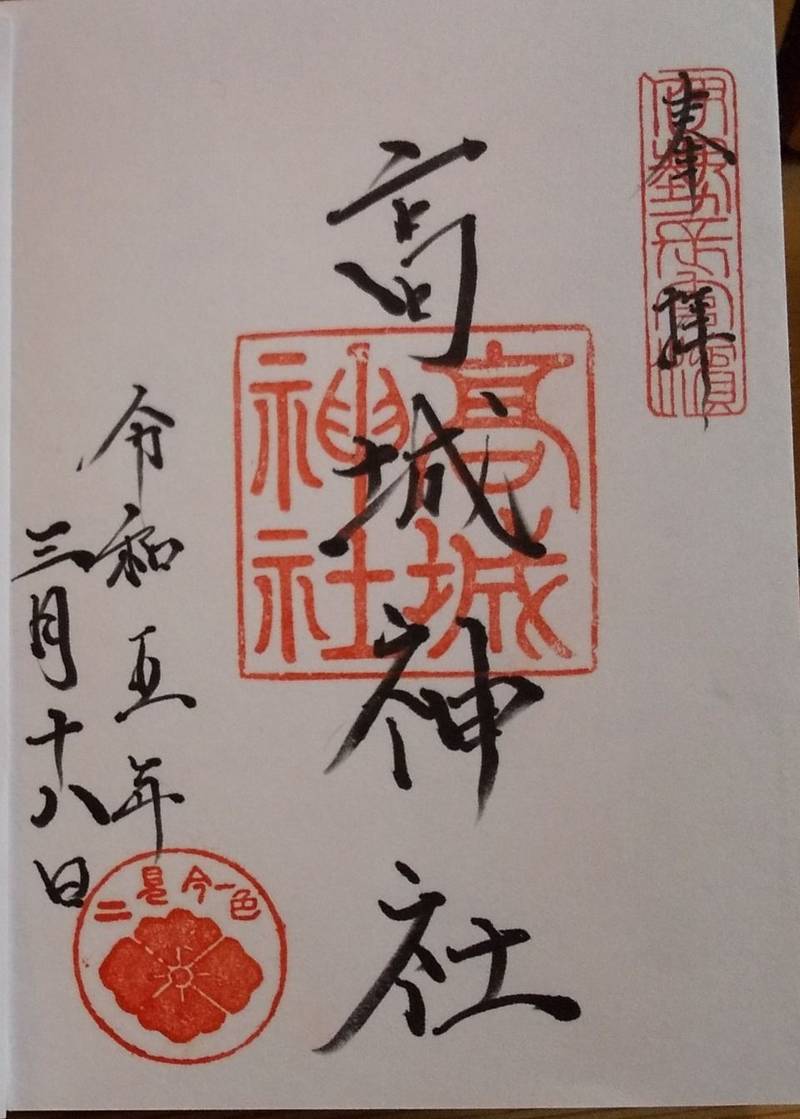 奉拝
高城神社
高城
神社
令和五年
三月十八日
二見今一色